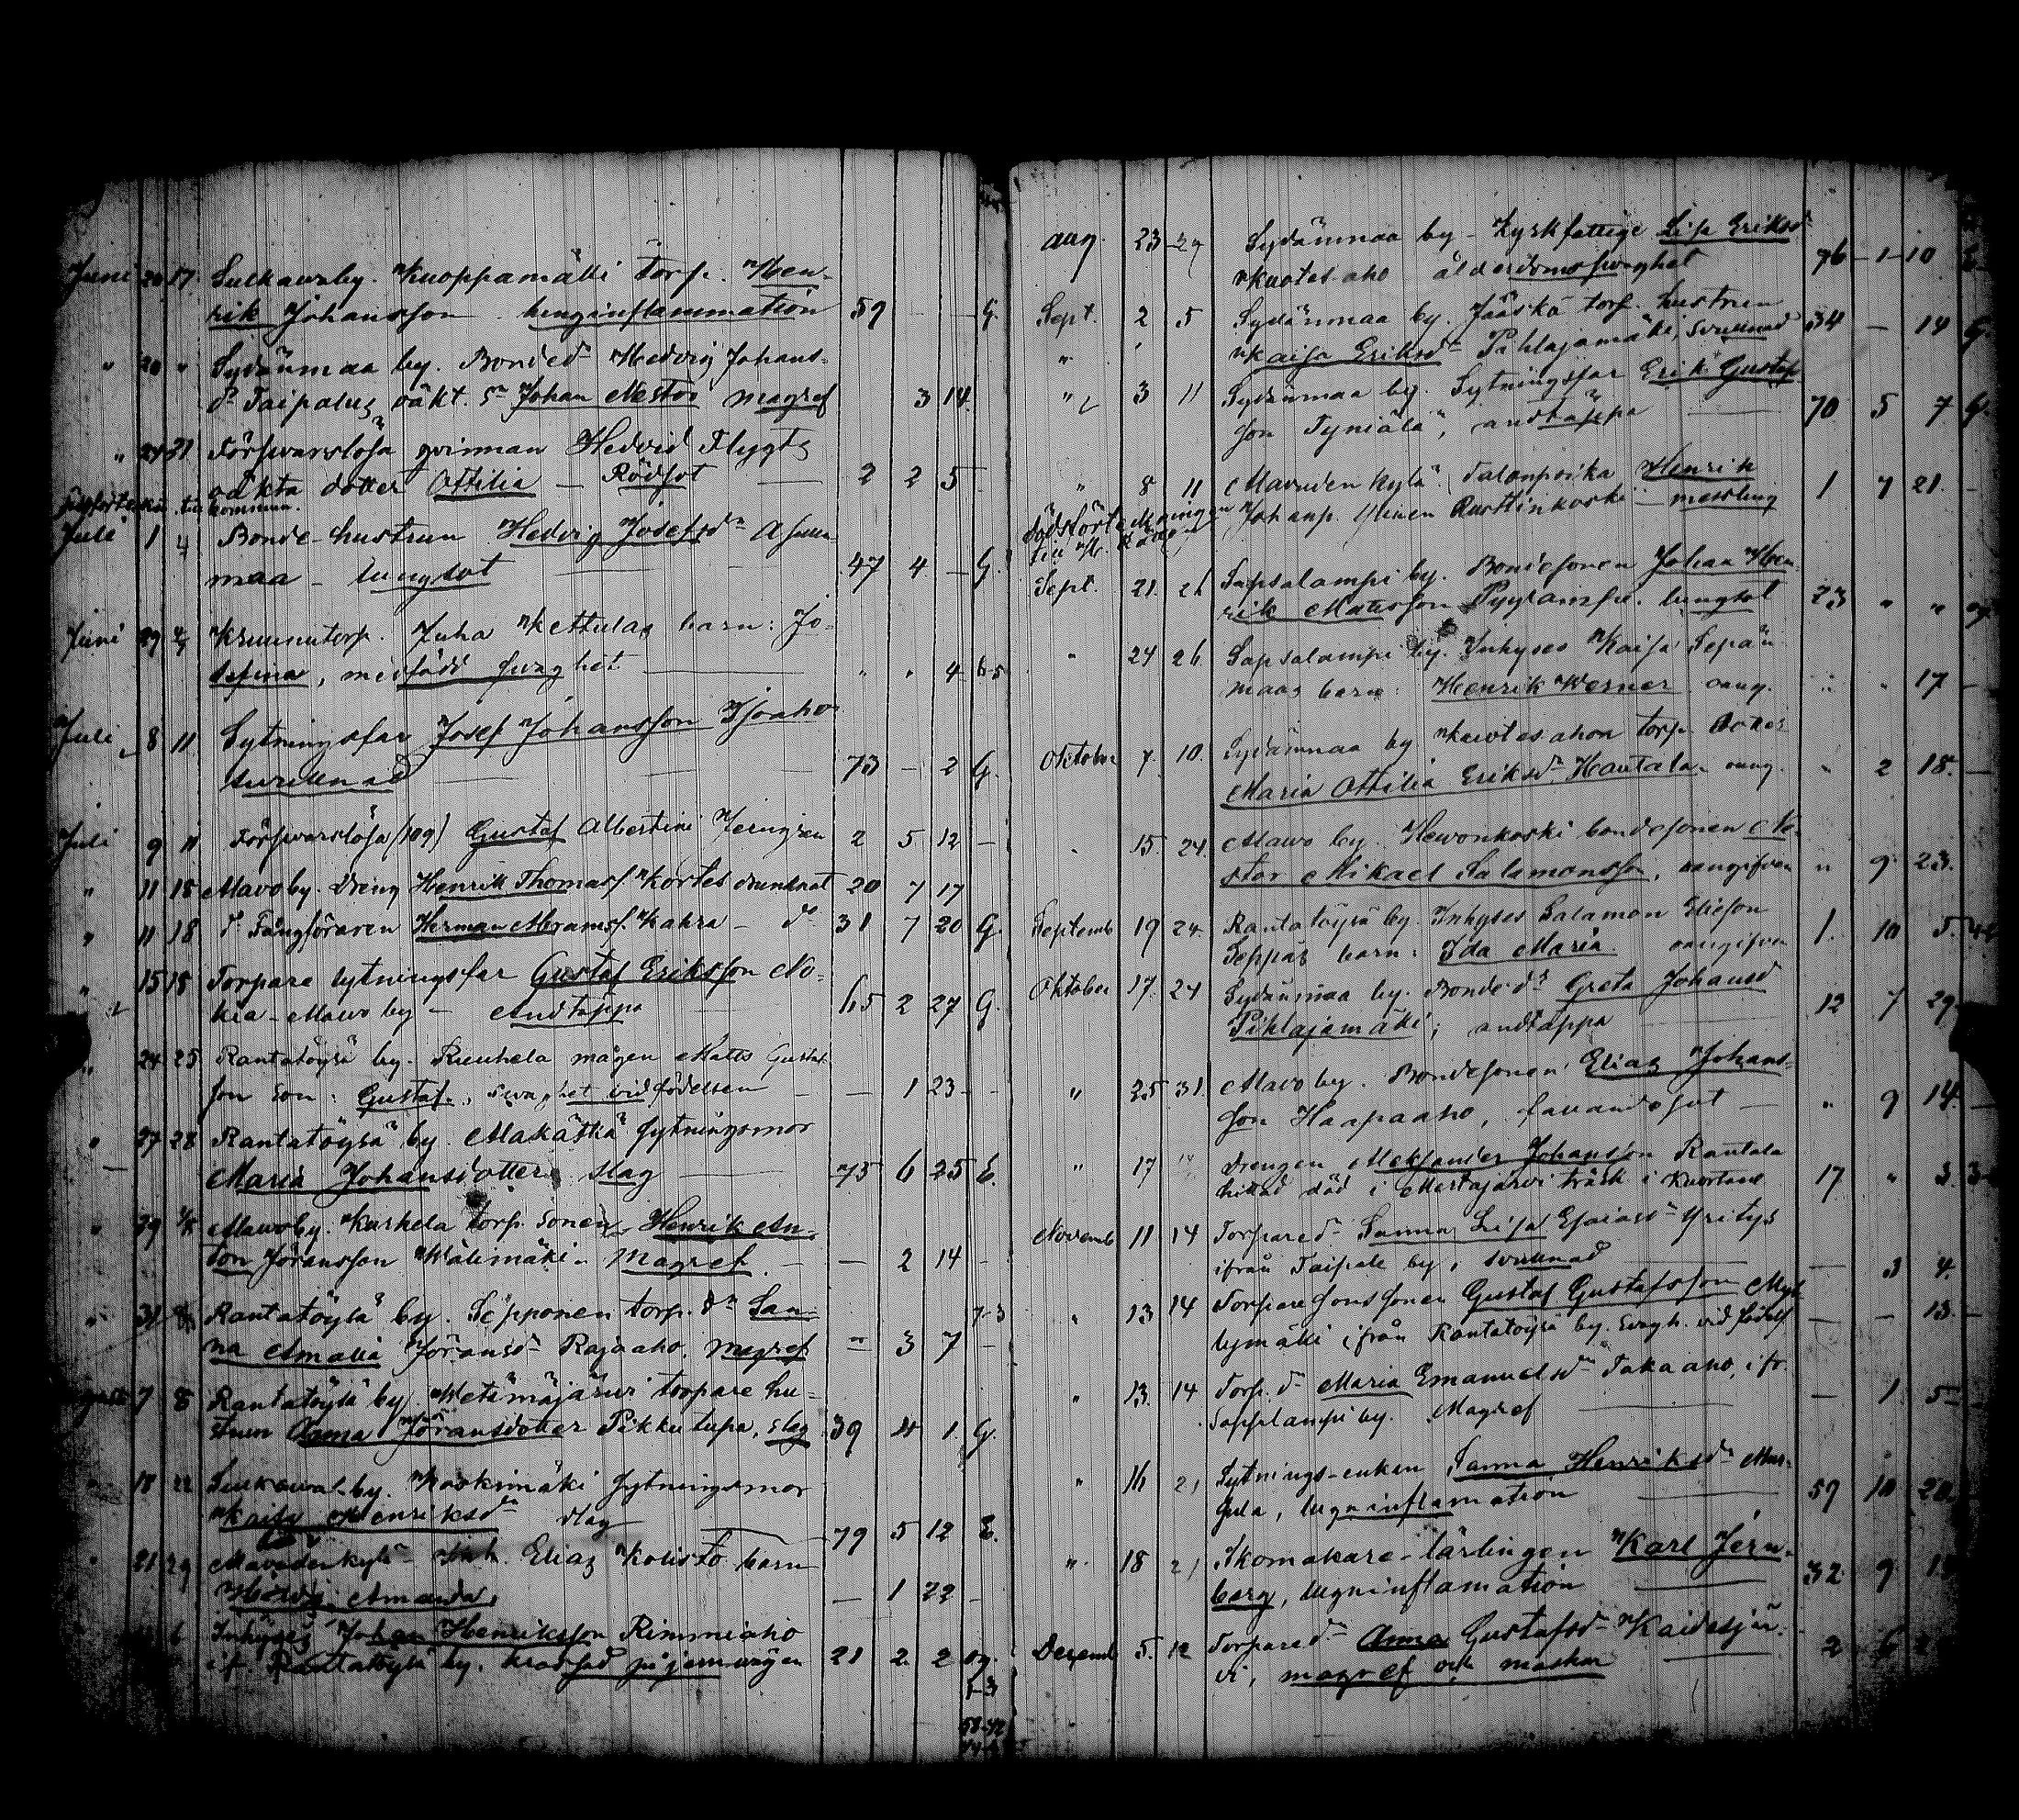 Juni 20 17 Sulkavaby. Kuoppamäki torp. Hen-
rik Johansson lunginflammation 59 — — G.
" 20 " Sydänmaa by. Bonded. Hedvig Johans-
dr Taipalus oäkt. Sn Johan Nestor magref 3 14.
" 24 31 Förswarslösa qvinnan Hedvid Flygts
oäkta dotter Ottilia — Rödsot — 2 2 5
kommun.
Juli 1 4 Bonde-hustrun Hedvig Josefsdr
maa — lungsot 47 4 — G.
Juni 29 Kruunutorp. Juha Kettulas barn: Jo-
sefina, medfödd swaghet " " 4
Juli 8 11 Sytningsfar Josef Johansson Isoaho
swullnad 73 — 2 G.
Juli 9 11 Förswarslösa (109) Gustaf Albertini 2 5 12 —
" 11 18 Mavoby. Dreng Henrik Thomass. Kortes drunknat 20 7 17
" 11 18 do Fångföraren Herman Abramss. Kahra — do 31 7 20 G.
" 15 18 Torpare sytningsfar Gustaf Eriksson No-
kia — Mavo by — Andtäppa 65 2 27 G.
" 24 25 Rantatöysä by. Ruuhela mågen Matts Gustaf-
son son: Gustaf, swaghet vid födelsen — — 1 23 —
" 27 28 Rantatöysä by. Mäkäskä sytningsmor
Maria Johansdotter slag — 75 6 25 E.
" 29 Mavoby. Karhela torp. sonen Henrik An-
ton Jöransson Wälimäki. Magref — — 2 14 —
" 31 Rantatöysä by. Sepponen torp. dr San-
na Amalia Jöransdr Rajaaho, magref — 3 7 —
7 8 Rantatöysä by Metsäjärvi torpare hu-
strun Anna Jöransdotter Pikkutupa, slag 39 4 1. G.
" 18 22 Sulkava-by. Koskimäki sytningsmor
Kaisa Henriksdr slag 79 5 12 E.
" 21 29 Mavuden kylä Elias Kolisto barn
Hedvig Amanda. — 1 22 —
6 Inhyses Johan Henriksson Rimmiaho
if. Rantatöysä by. krossad på jernwägen 21 2 2 og.
Aug. 23 27 Sydänmaa by — Lyskfattige Lisa Eriksdr
Kuotesaho ålderdomsswaghet 76 — 1 — 10 E
Sept. 2 5 Sydänmaa by. Jääskä torp. hustrun
" Kaisa Eriksdr Pihlajamäki, swullnad 34 — 14 G.
" 3 11 Sydänmaa by. Sytningsfar Erik Gustaf-
son Tyniälä, andtäppa 70 5 7 G.
" 8 11 Mavuden kylä. Talonpoika Henrik
Johanp. Ylinen Ruttinkoski — messling 1 7 21. —
Sept. 21. 26 Sapsalampi by. Bondesonen Johan Hen-
rik Matsson Pyylampi. lungsot 23 " " og.
" 24 26. Sapsalampi by. Inhyses Kaisa Sepän-
maas barn: Henrik Werner. oang. " " 17 —
Oktober 7. 10. Sydänmaa by. Kuotesahon torp. dotter
Maria Ottilia Eriksdr Hautala. oang. " 2 18. —
" 15. 24. Mavo by. Hewonkoski bondesonen Ne-
stor Mikael Salomonsson, oangifven " 9 23.
Septemb. 19 24. Rantatöysä by. Inhyses Salamon Eliesson
Seppäs barn: Ida Maria. oangifven 1. 10 5.
Oktober 17. 24 Sydänmaa by. Bonde dr Greta Johansdr
Pihlajamäki; andtäppa 12 7 29.
" 25 31. Mavoby. Bondesonen Elias Johans-
son Haapaaho, — " 9 14. —
" 17 Drengen Aleksander Johanson Rantala
hittad död i Mestajärvi träsk i Kuortane 17. " 3.
Novemb 11 14 Torparedr Sanna Lisa Esaiasdr Yritys
ifrån Taipale by, swullnad — 3 4.
" 13 14 Torparesonsonen Gustaf Gustafsson Myl-
lymäki ifrån Rantatöysä by. Swagh. vid födels — — 13. —
" 13. 14 Torp. dr Maria Emanuelsdr Takaaho, ifr.
Sapplampi by. Magref — 1. 5
" 16 21 Sytnings-enkan Sanna Henriksdr
lugninflamation 59 10 20.
" 18 21 Skomakare-lärlingen Karl Jern-
berg, lugninflamation 32. 9
Decemb. 5. 12 Torparedr Anna Gustafsdr Kaidesjär-
vi, magref och maskar 2 6